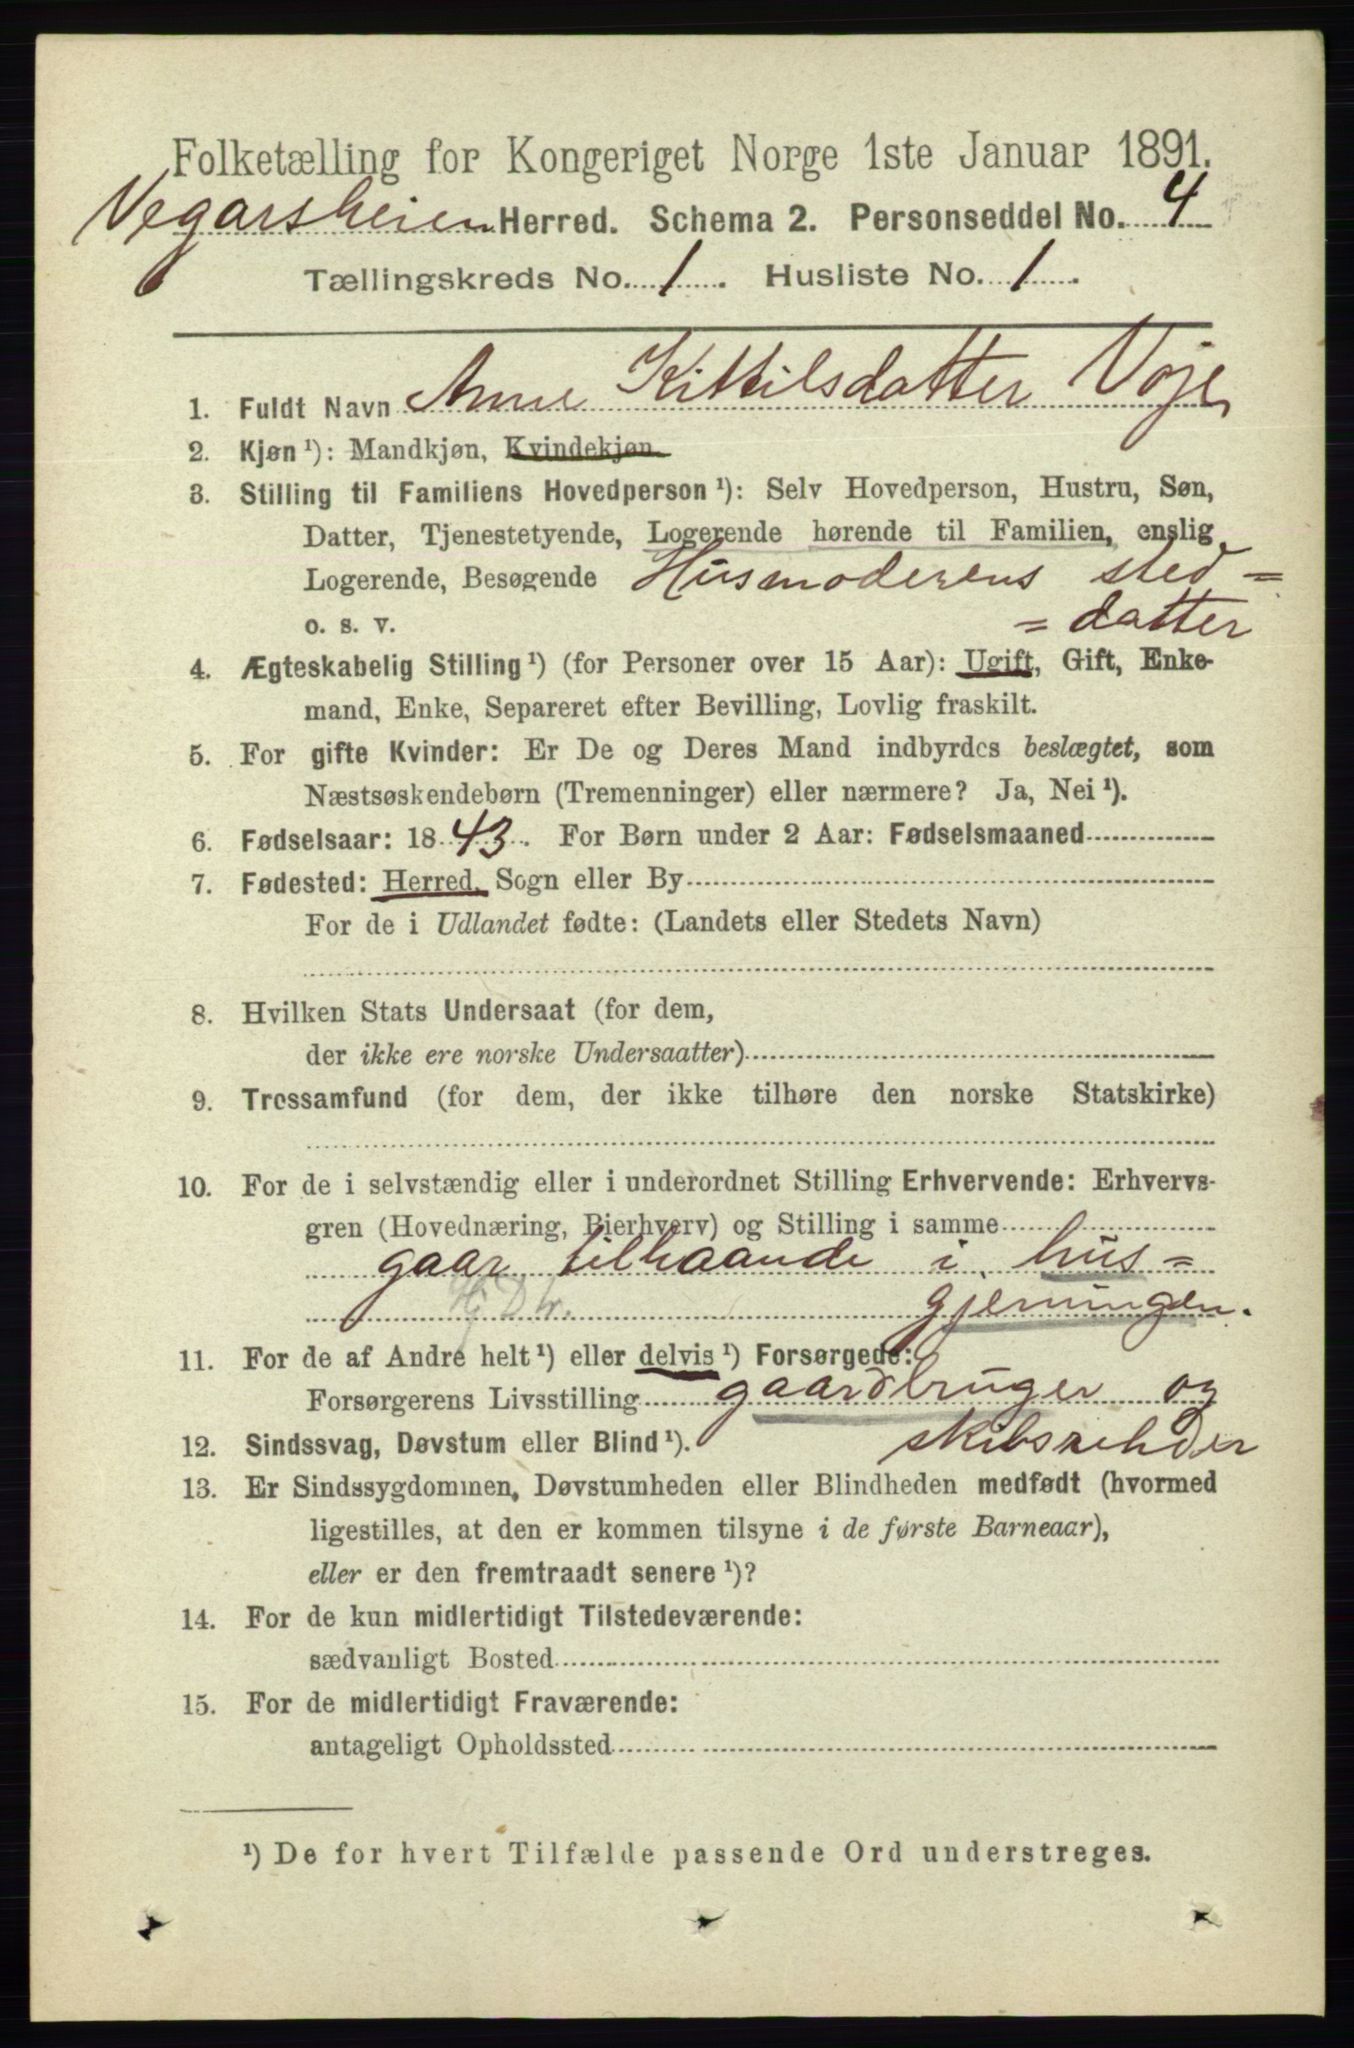 Folketælling for Kongeriget Norge 1ste Januar 1891.
Vegarsheien Herred. Schema 2. Personseddel No. 4
Tællingskreds No. 1. Husliste No. 1.
1. Fuldt Navn Anne Kittilsdatter Voje
2. Kjøn ¹): Mandkjøn, Kvindekjøn.
3. Stilling til Familiens Hovedperson ¹): Selv Hovedperson, Hustru, Søn,
Datter, Tjenestetyende, Logerende hørende til Familien, enslig
Logerende, Besøgende Husmoderens sted =
o. s. v. = datter
4. Ægteskabelig Stilling ¹) (for Personer over 15 Aar): Ugift, Gift, Enke-
mand, Enke, Separeret efter Bevilling, Lovlig fraskilt.
5. For gifte Kvinder: Er De og Deres Mand indbyrdes beslægtet, som
Næstsøskendebørn (Tremenninger) eller nærmere? Ja, Nei ¹).
6. Fødselsaar: 1843. For Børn under 2 Aar: Fødselsmaaned
7. Fødested: Herred, Sogn eller By
For de i Udlandet fødte: (Landets eller Stedets Navn)
8. Hvilken Stats Undersaat (for dem,
der ikke ere norske Undersaatter)
9. Trossamfund (for dem, der ikke tilhøre den norske Statskirke)
10. For de i selvstændig eller i underordnet Stilling Erhvervende: Erhvervs-
gren (Hovednæring, Bierhverv) og Stilling i samme
gaar tilhaande i hus=
gjerningen.
11. For de af Andre helt ¹) eller delvis ¹) Forsørgede:
Forsørgerens Livsstilling gaardbruger og
12. Sindssvag, Døvstum eller Blind ¹). skibsrehder
13. Er Sindssygdommen, Døvstumheden eller Blindheden medfødt (hvormed
ligestilles, at den er kommen tilsyne i de første Barneaar),
eller er den fremtraadt senere ¹)?
14. For de kun midlertidigt Tilstedeværende:
sædvanligt Bosted
15. For de midlertidigt Fraværende:
antageligt Opholdssted
¹) De for hvert Tilfælde passende Ord understreges.